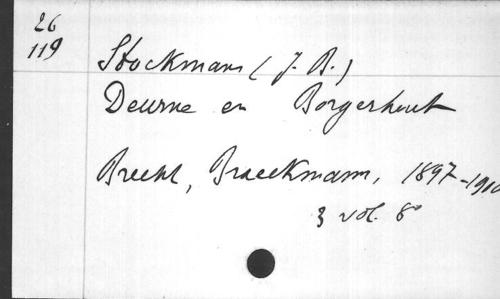 26
119
Stockmans (J. B.)
Deurne en Borgerhout
Brecht, Braeckmans, 1897-1910
3 vol. 8°